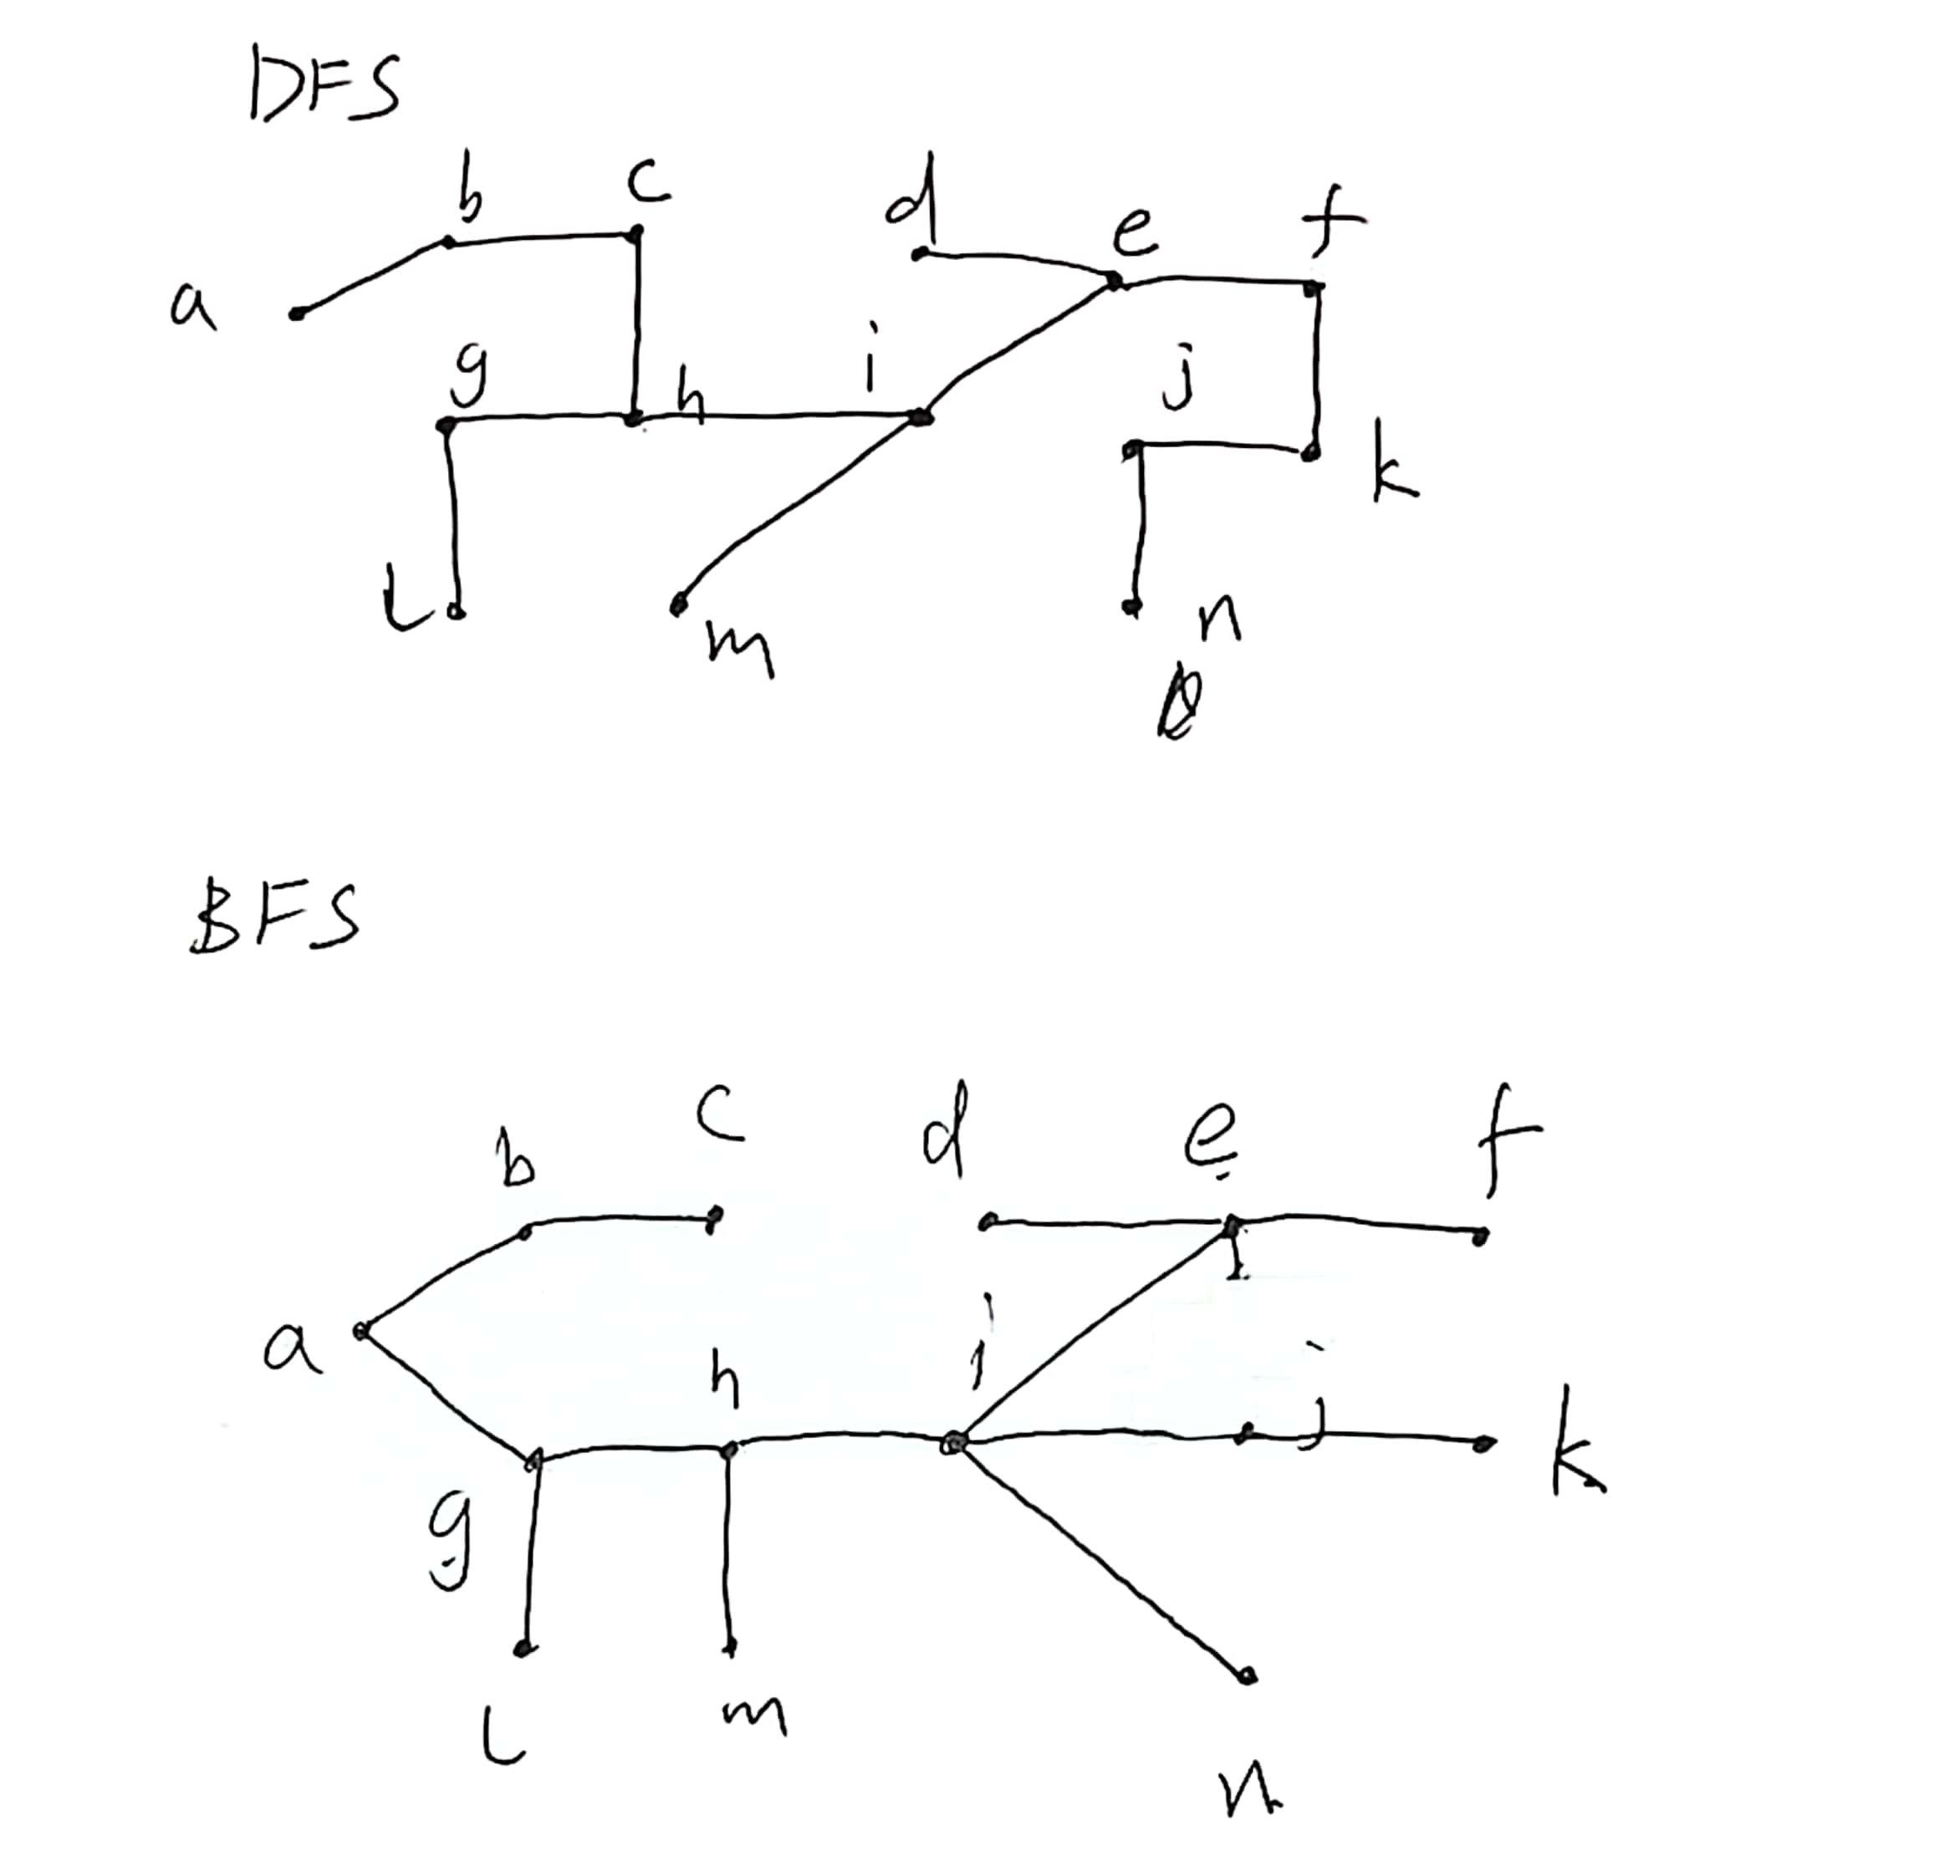 DFS
b c d e f
a
g h i j k
l m n
BFS
b c d e f
a h i j k
g
l m n